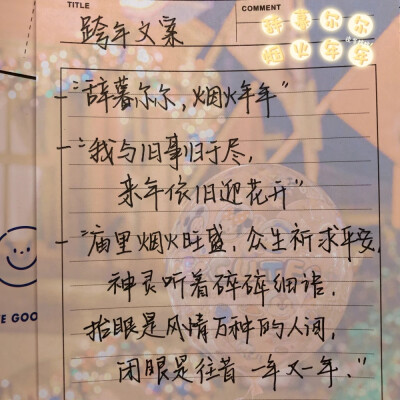 TITLE
COMMENT
跨年文案
辞暮尔尔
烟火年年
一:"辞暮尔尔,烟火年年"
一:"我与旧事归于尽,
来年依旧迎花开"
一:"庙里烟火旺盛,众生祈求平安,
神灵听着碎碎细语,
抬眼是风情万种的人间,
闭眼是往昔一年又一年."
E GOO